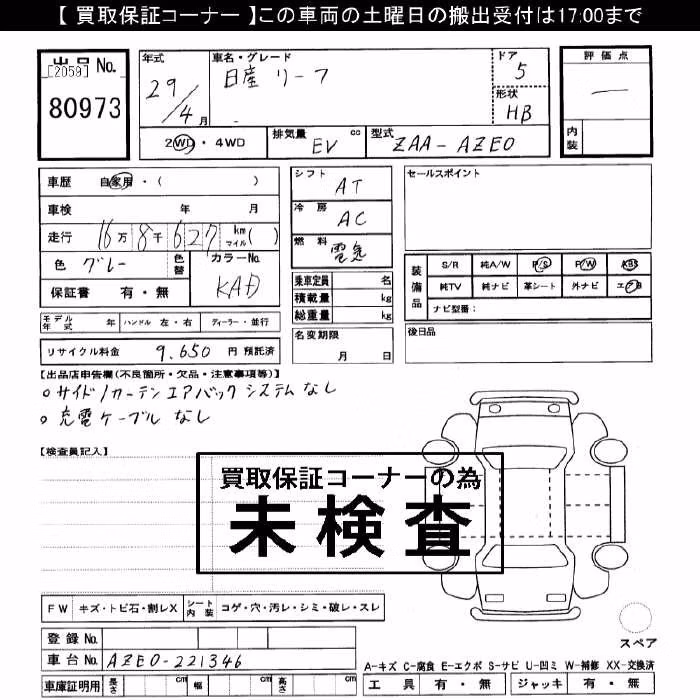 【 買取保証コーナー 】この車両の土曜日の搬出受付は17:00まで
出品 No.
[2059]
80973
年式
29/4月
車名・グレード
日産 リーフ
ドア
5
形状
HB
評価点
—
内装
2WD・4WD
排気量 EV cc
型式 ZAA-AZE0
車歴 自家用・( )
車検 年 月
走行 16万8千627 km マイル( )
色 グレー
色替
カラーNo.
KAD
保証書 有・無
シフト
AT
冷房
AC
燃料
電気
乗車定員 名
積載量 kg
総重量 kg
名変期限
月 日
セールスポイント
装備品
S/R 純A/W P/S P/W ABS
純TV 純ナビ 革シート 外ナビ エアB
ナビ型番：
後日品
モデル年式 年 ハンドル 左・右 ディーラー・並行
リサイクル料金 9,650 円 預託済
【出品店申告欄(不良箇所・欠品・注意事項等)】
○サイド/カーテンエアバックシステムなし
○充電ケーブルなし
【検査員記入】
買取保証コーナーの為
未検査
FW キズ・トビ石・割レX
シート内装 コゲ・穴・汚レ・シミ・破レ・スレ
登録 No.
車台 No. AZE0-221346
車庫証明用 長さ cm 幅 cm 高さ cm
スペア
A-キズ C-腐食 E-エクボ S-サビ U-凹ミ W-補修 XX-交換済
工具 有・無 ジャッキ 有・無